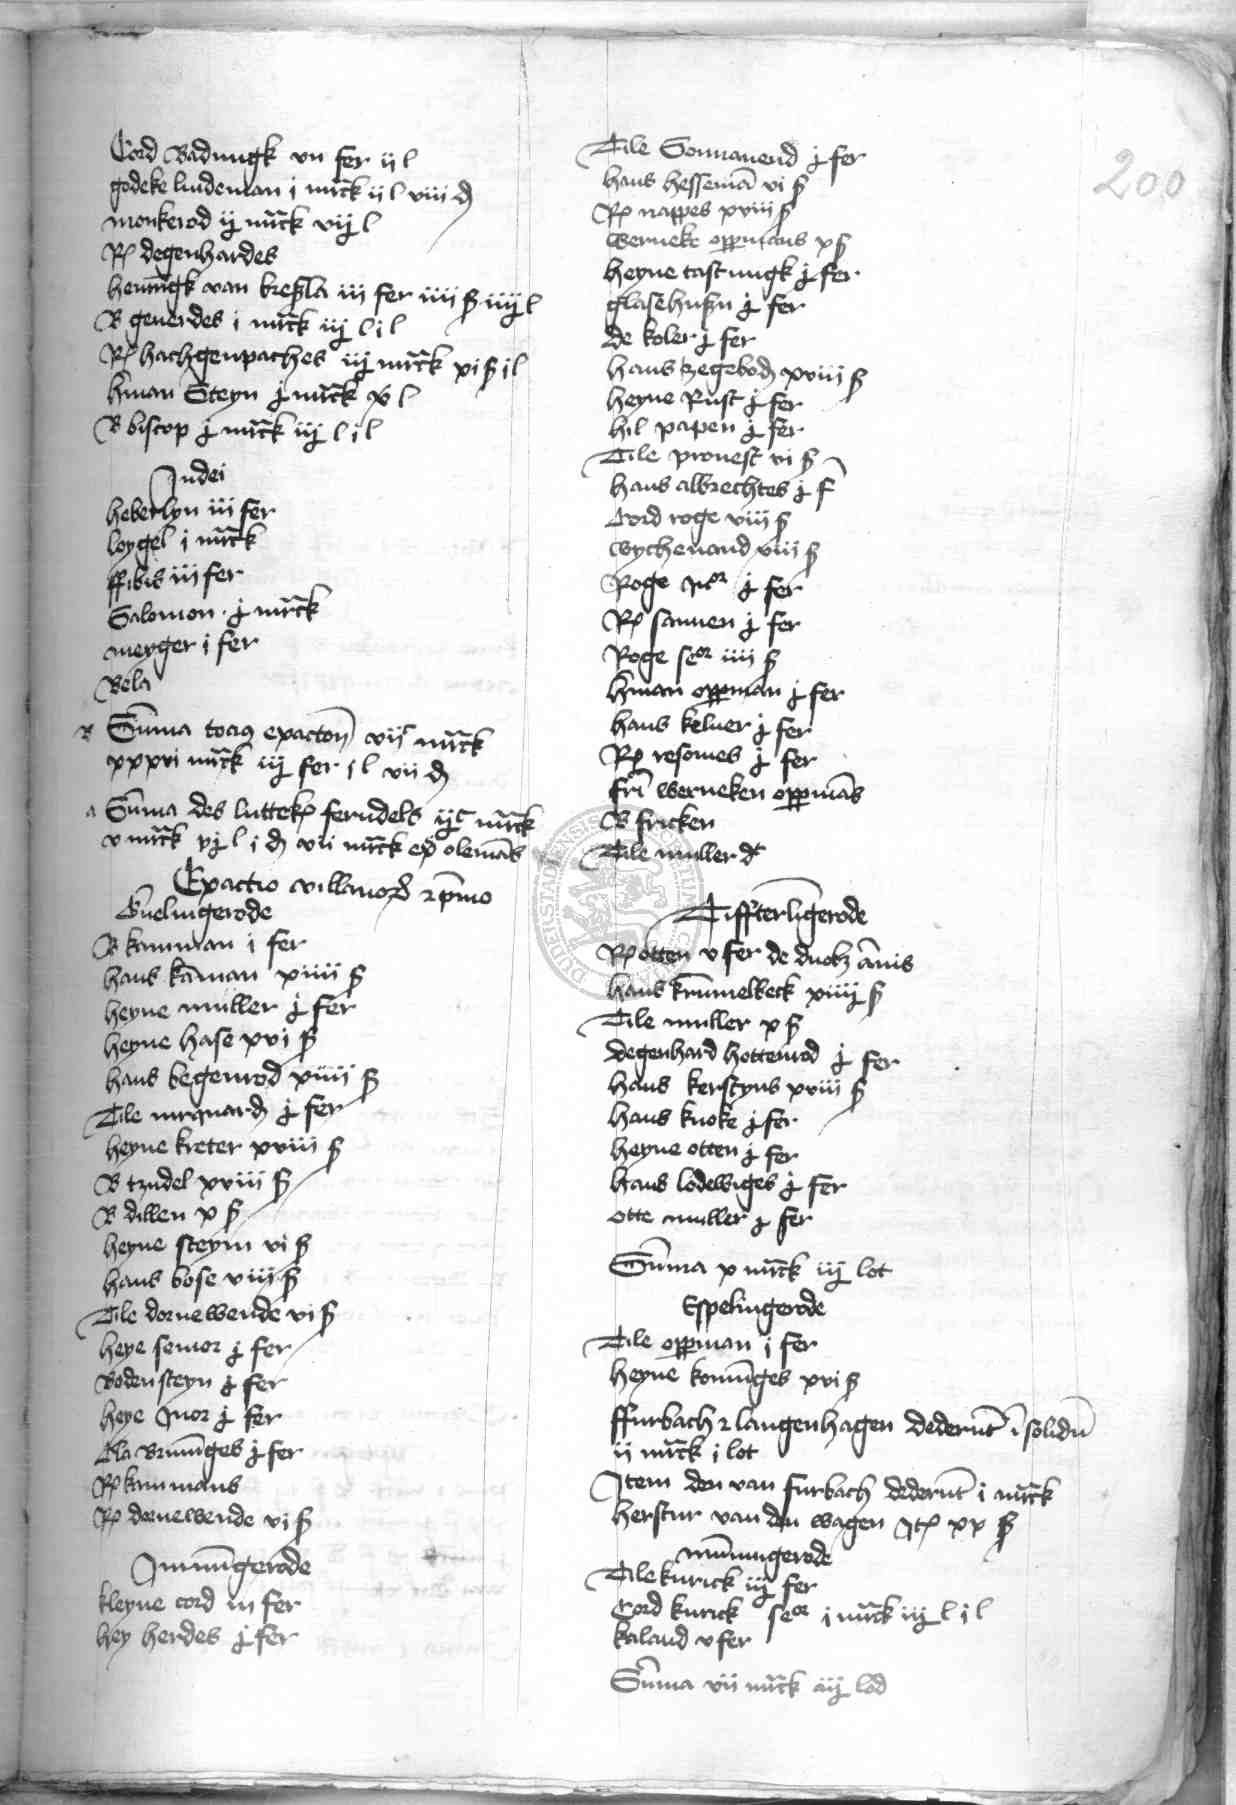 200
Cord Badungk vii fer ij l
godeke lindeman i mr̄ck ij l viii d
monkerod ij mr̄ck vij l
R degenhardes
henīgk van breßla iii fer iiii ß iiij l
B geuerdes i mr̄ck iij l i l
R hachgenpaches iij mr̄ck xi ß i l
hman Steyn j mr̄ck xv l
B biscop j mr̄ck iij l i l
Judei
heberlyn iii fer
loygel i mr̄ck
ffibis iii fer
Salomon j mr̄ck
meyger i fer
Bela
B Sūma exacton vijc mr̄ck
xxxvi mr̄ck iij fer i l vii d
a Sūma des lutteken ferndels ijc mr̄ck
v mr̄ck l i d vii mr̄ck olemās
Exactio villanor
Bnelingerode
B kamman i fer
hans kāman xiiii ß
heyne muller j fer
heyne hase xvi ß
hans begenrod xiiii ß
Tile mrquard j fer
heyne kreter xviii ß
B tzudel xviii ß
B dillen x ß
heyne steyn vi ß
hans bose viii ß
Tile dornewende vi ß
heye senior j fer
Bodensteyn j fer
heye Junior j fer
Ela Brunīges j fer
R kammans
R dornewende vi ß
Jmmīgerode
kleyne cord iii fer
hey herdes j fer
Tile Sonnauend j fer
hans hessemā vi ß
R nappes xviii ß
werneke oppmans x ß
heyne tastungk j fer
glasehußn j fer
de koler j fer
hans zegebod xviii ß
heyne Rust j fer
hil papen j fer
Tile prouest vi ß
hans albrechtes j f
Cord roge viii ß
wychenand viii ß
Roge Jor j fer
R sannen j fer
Roge seor iiii ß
hman oppman j fer
hans keluer j fer
R resomes j fer
frī werneken oppmās
B fricken
Tile muller dt
Tifftelīgerode
R otten v fer de duobz ānis
hans krūmelbeck xiiij ß
Tile muller x ß
degenhard hottenrod j fer
hans kerstyns xviii ß
hans knoke j fer
heyne otten j fer
hans lodewiges j fer
otte muller j fer
Sūma x mr̄ck iij lot
Espelingerode
Tile oppman i fer
heyne konīges xvi ß
ffurbach z langenhagen dederūt ī solidū
ij mr̄ck i lot
Item den van furbach dederūt i mr̄ck
herstur van den wagen xx ß
mīnigerode
Tile kurick iij fer
Cord kurick seor i mr̄ck iij l i l
kaland v fer
Sūma vii mr̄ck iij lod